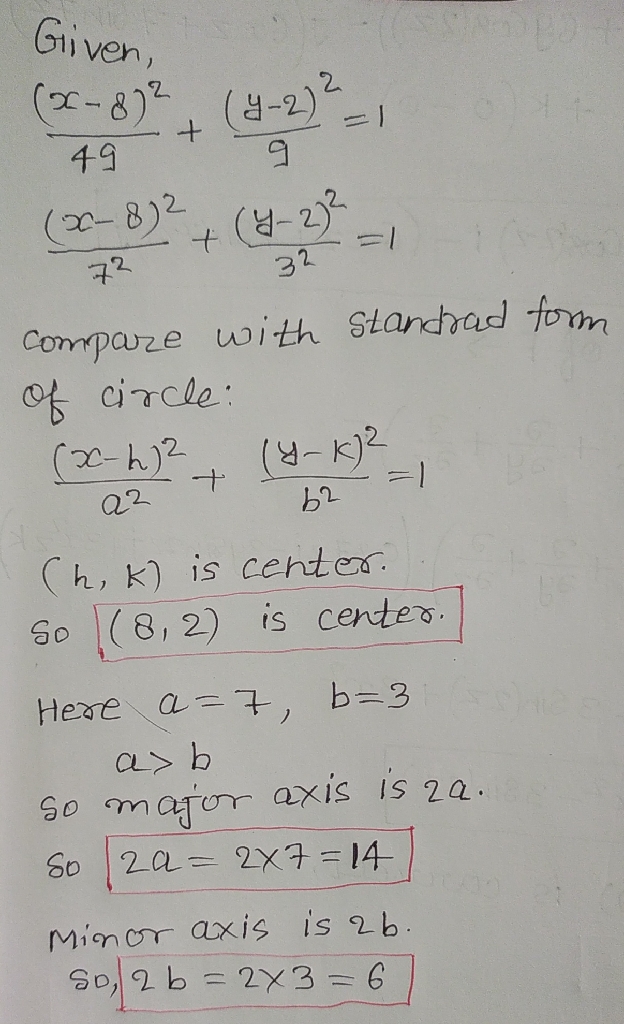 Given,
(x-8)²/49 + (y-2)²/9 = 1
(x-8)²/7² + (y-2)²/3² = 1
compare with standrad form
of circle:
(x-h)²/a² + (y-k)²/b² = 1
(h, k) is center.
so (8,2) is center.
Here a=7, b=3
a>b
so major axis is 2a.
so 2a = 2×7 = 14
Minor axis is 2b.
so, 2b = 2×3 = 6